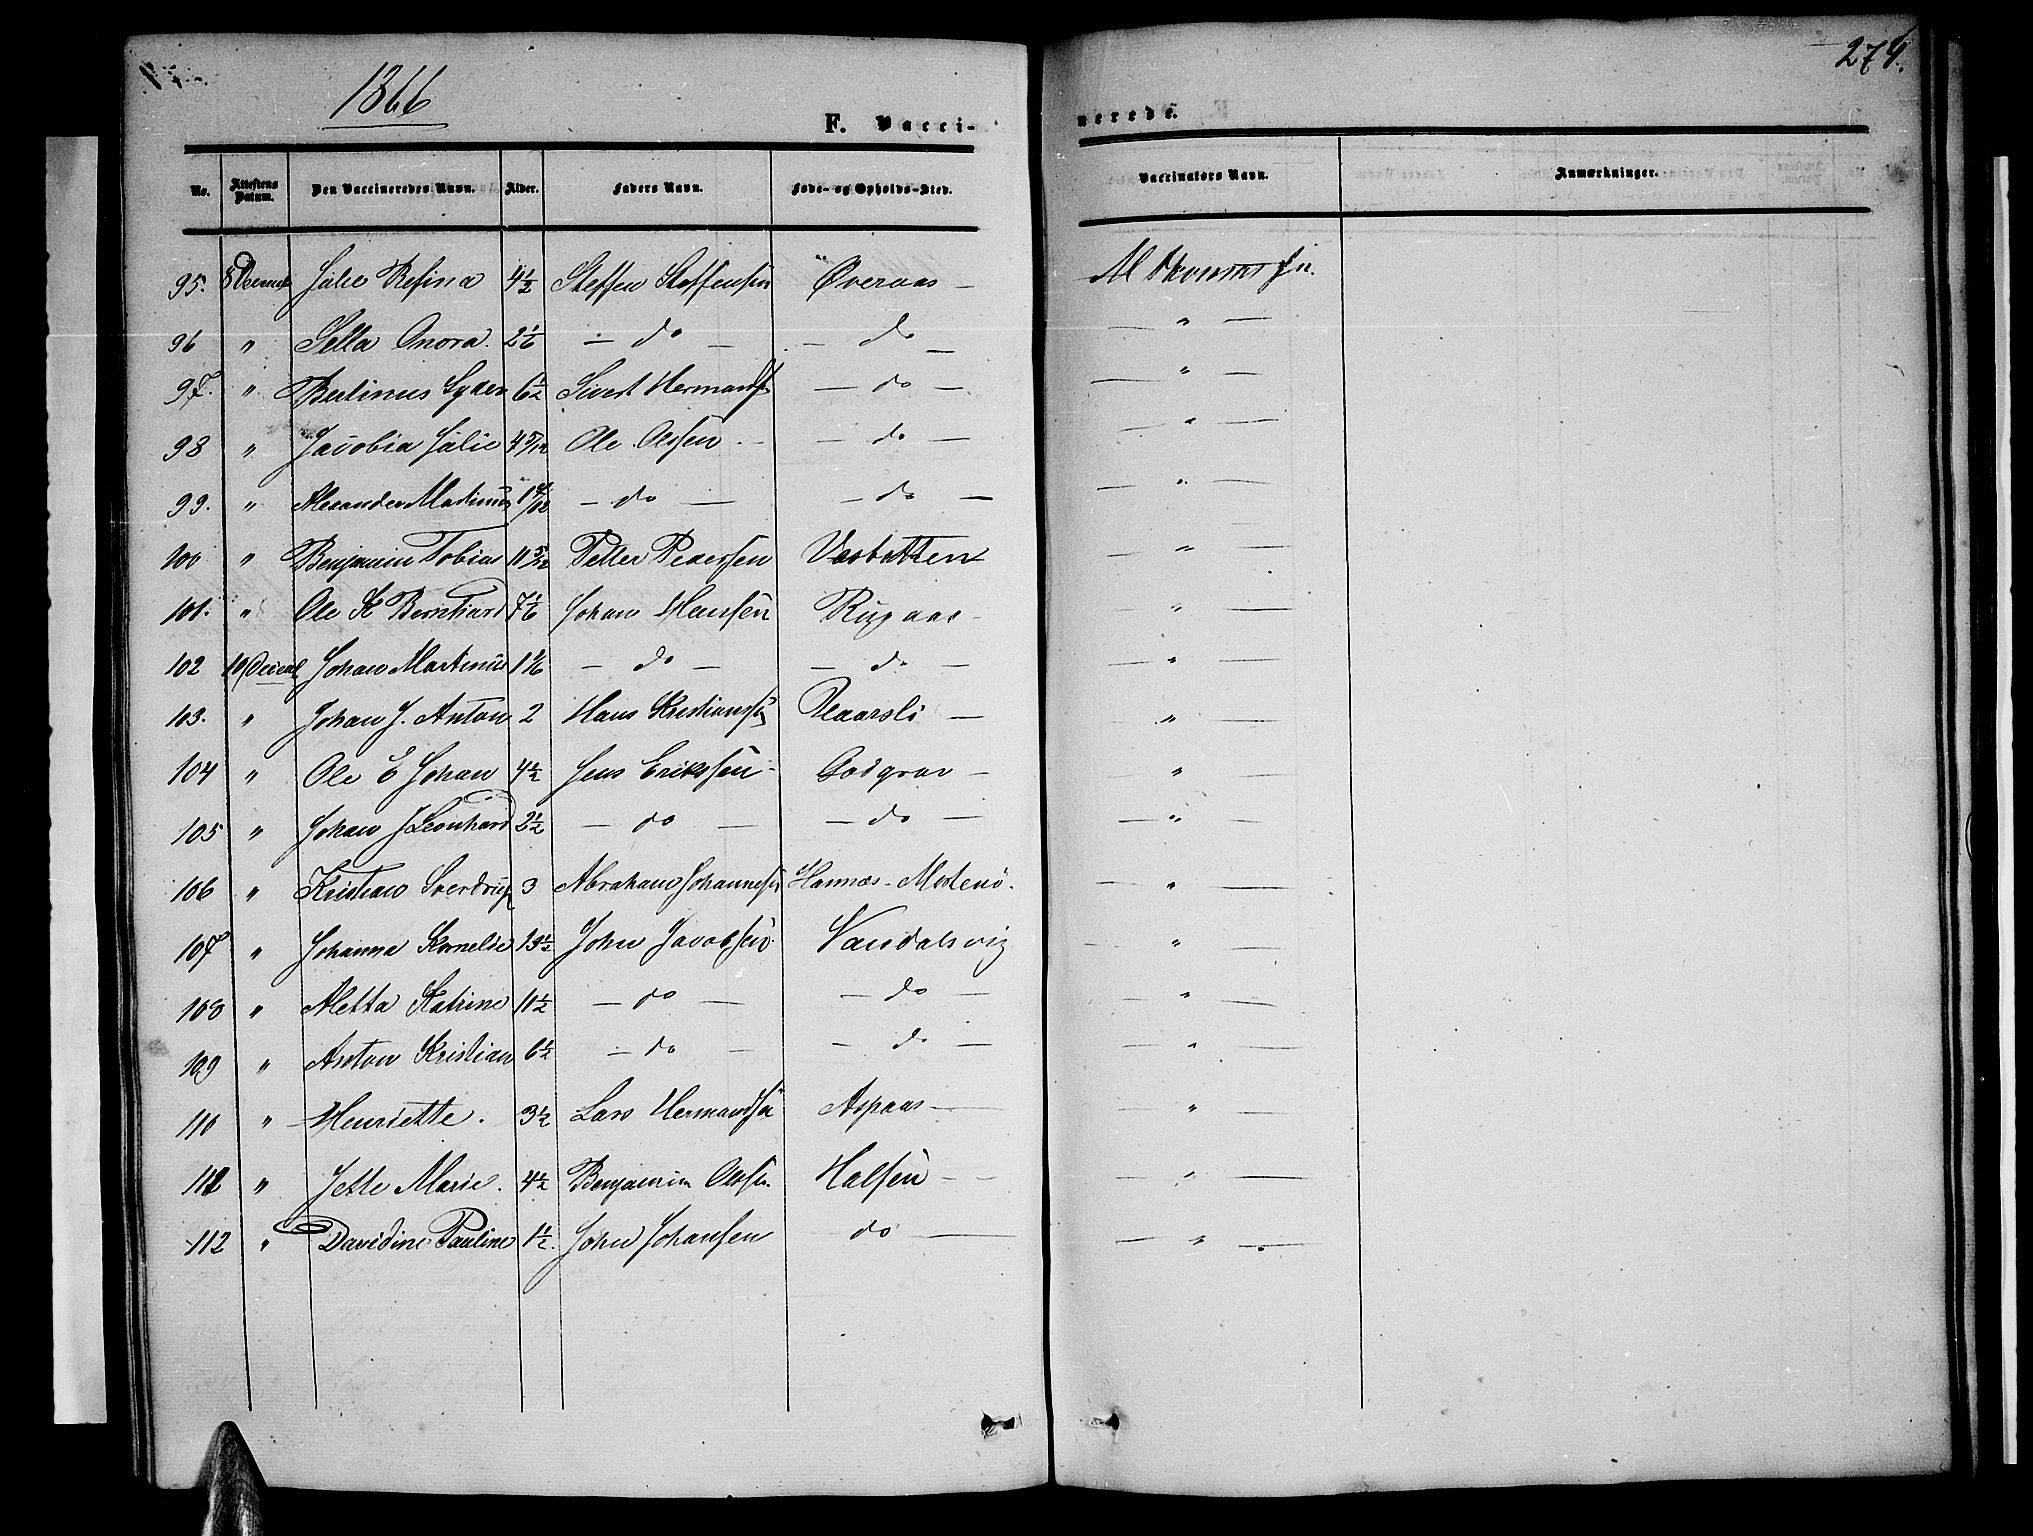 1866
274.
F. Vacci-
nerede.
No. Attestens Datum. Den Vaccineredes Navn. Alder. Faders Navn. Føde- og Opholds-Sted. Vaccinators Navn. Anmærkninger.
95. 8 Julie Refina 4 1/2 Steffen Steffensen Øveraas —
96 " Sella Onora. 2 1/6 — do — — do — — " —
97. " Bertinus 6 1/2 Sivert Hermansen — do — — " —
98 " Jacobia Julie 4 5/12 Ole Olsen — — do — — " —
99. " Alexander Martinus — do — — do — — " —
100 " Benjamin Tobias 11 5/12 Petter Pedersen — " —
101. " Ole K Bernhard 7 1/6 Johan Hansen — " —
102 10 Johan Martinus 1 1/6 — do — — do — — " —
103. " Johan J. Anton 2 Hans Kristiansen — — " —
104 " Ole E Johan 4 1/2 Jens Erikssen — — " —
105 " Johan J Leonhard 2 1/2 — do — — do — — " —
106 " Kristian Sverdrup 3 Abraham Johannesen — " —
107 " Johanna Kornelie 13 1/2 John Jacobsen Vandalsvig — " —
108 " Aletta Katrine 11 1/2 — do — — do — — " —
109 " Anton Kristian 6 1/2 — do — — do — — " —
110 " Henriette. 3 1/2 Lars Hermandsen Aspaas — — " —
111 " Jette Marie. 4 1/2 Benjamin Olsen Halsen — — — " —
112 " Davidine Pauline 1 1/2. John Johansen do — — " —